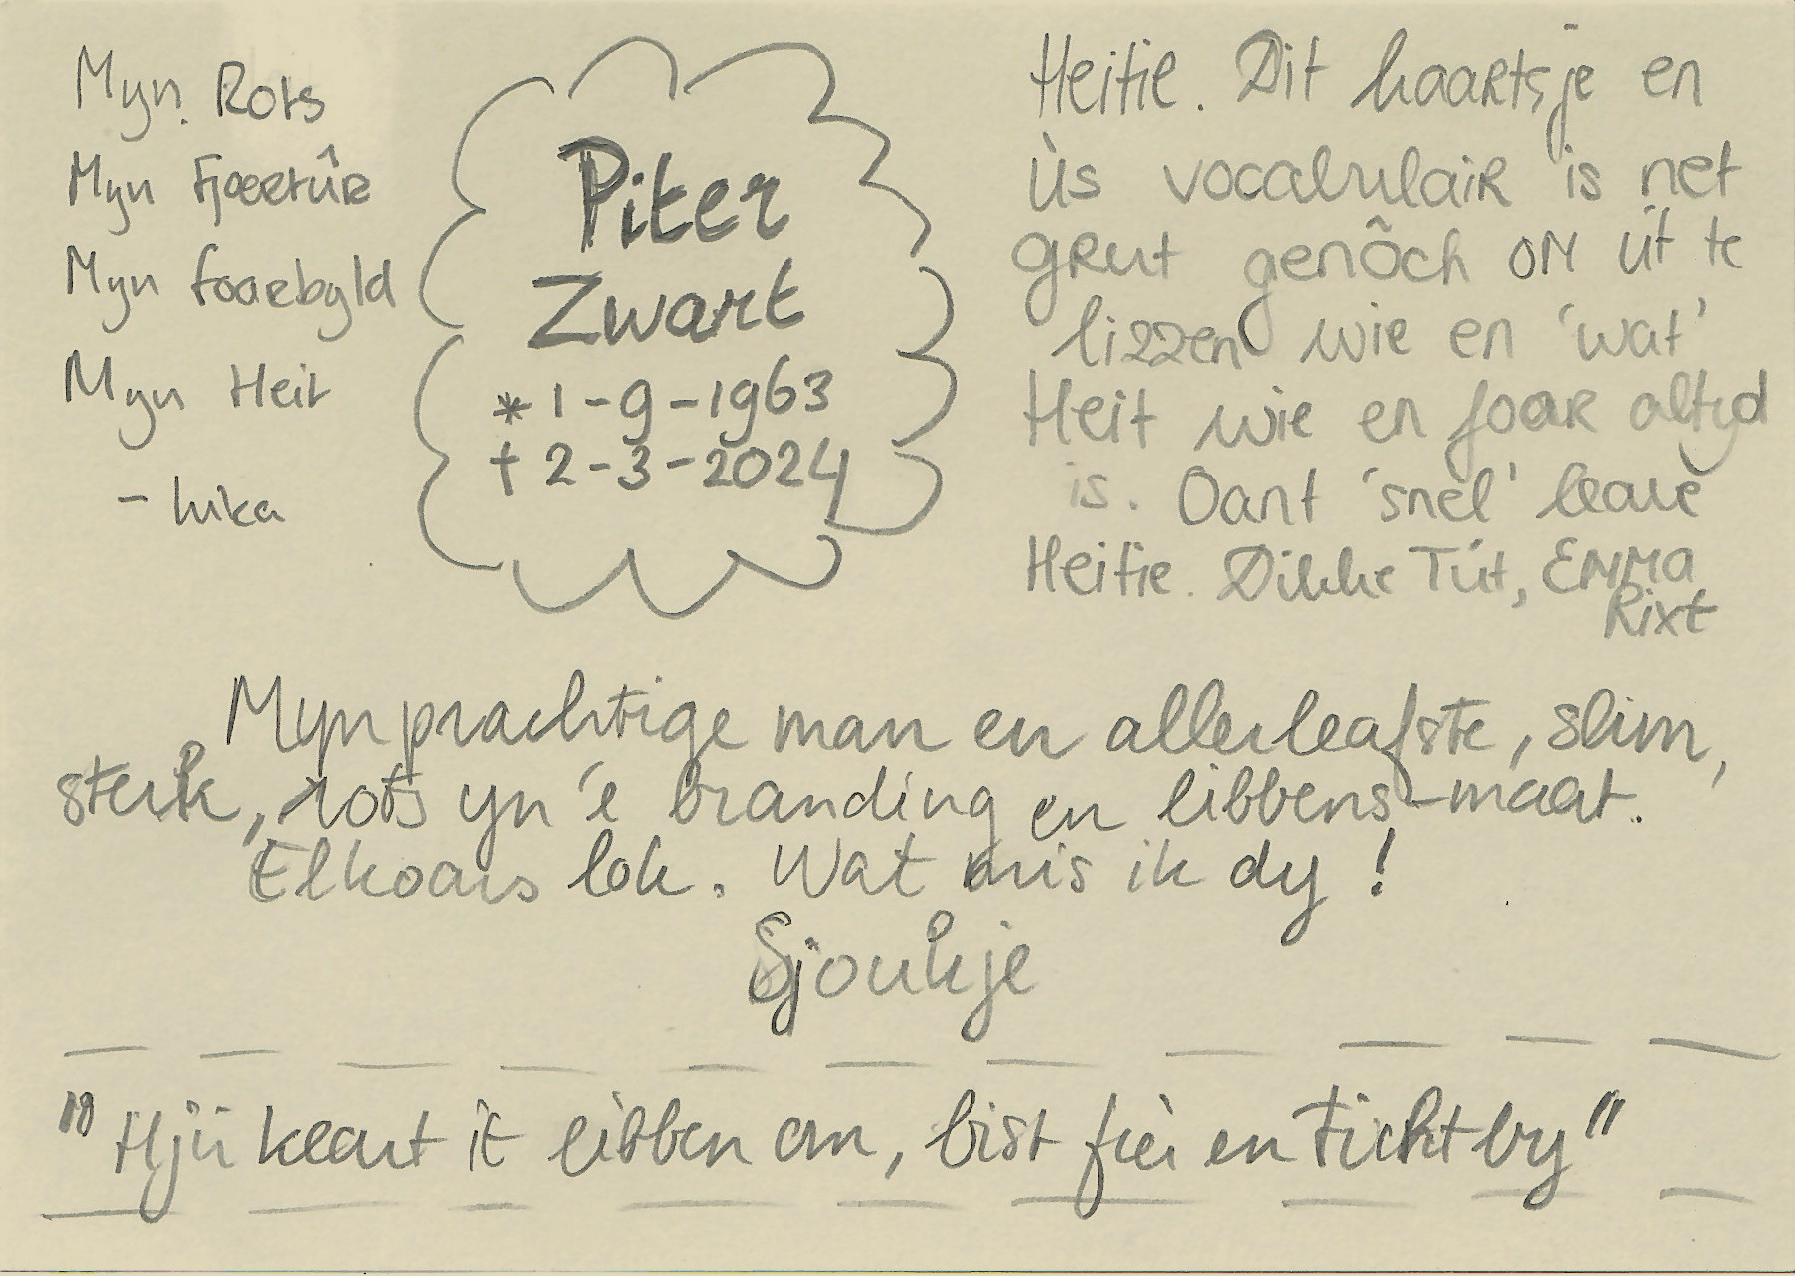 Myn Rots
Myn Fjoertûr
Myn foarbyld
Myn Heit
- Luka
Piter
Zwart
* 1-9-1963
† 2-3-2024
Heitie. Dit kaartsje en
ùs vocabulair is net
grut genôch om út te
lizzen wie en 'wat'
Heit wie en foar altyd
is. Oant 'snel' leave
Heitie. Dikke Tút, Emma
Rixt
Myn prachtige man en allerleafste, slim,
sterk, rots yn 'e branding en libbens-maat.
Elkoars lok. Wat mis ik dy!
Sjoukje
" Hjir keart it libben om, bist fier en ticht by "